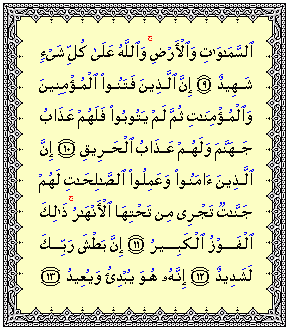 ٱلسَّمَـٰوَٰتِ وَٱلْأَرْضِ ۚ وَٱللَّهُ عَلَىٰ كُلِّ شَىْءٍۢ
شَهِيدٌ ﴿٩﴾ إِنَّ ٱلَّذِينَ فَتَنُوا۟ ٱلْمُؤْمِنِينَ
وَٱلْمُؤْمِنَـٰتِ ثُمَّ لَمْ يَتُوبُوا۟ فَلَهُمْ عَذَابُ
جَهَنَّمَ وَلَهُمْ عَذَابُ ٱلْحَرِيقِ ﴿١٠﴾ إِنَّ
ٱلَّذِينَ ءَامَنُوا۟ وَعَمِلُوا۟ ٱلصَّـٰلِحَـٰتِ لَهُمْ
جَنَّـٰتٌۭ تَجْرِى مِن تَحْتِهَا ٱلْأَنْهَـٰرُ ۚ ذَٰلِكَ
ٱلْفَوْزُ ٱلْكَبِيرُ ﴿١١﴾ إِنَّ بَطْشَ رَبِّكَ
لَشَدِيدٌ ﴿١٢﴾ إِنَّهُۥ هُوَ يُبْدِئُ وَيُعِيدُ ﴿١٣﴾